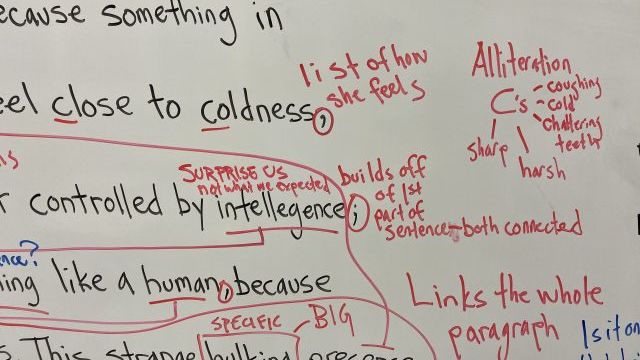 ecause something in
eel close to coldness,
list of how
she feels
Alliteration
C's
- coughing
- cold
- chattering
teeth
sharp
harsh
SURPRISE US
not what we expected
r controlled by intellegence;
builds off
of 1st
part of
sentence - both connected
ence?
ing like a human, because
Links the whole
paragraph
SPECIFIC - BIG
s. This strange hulking presence